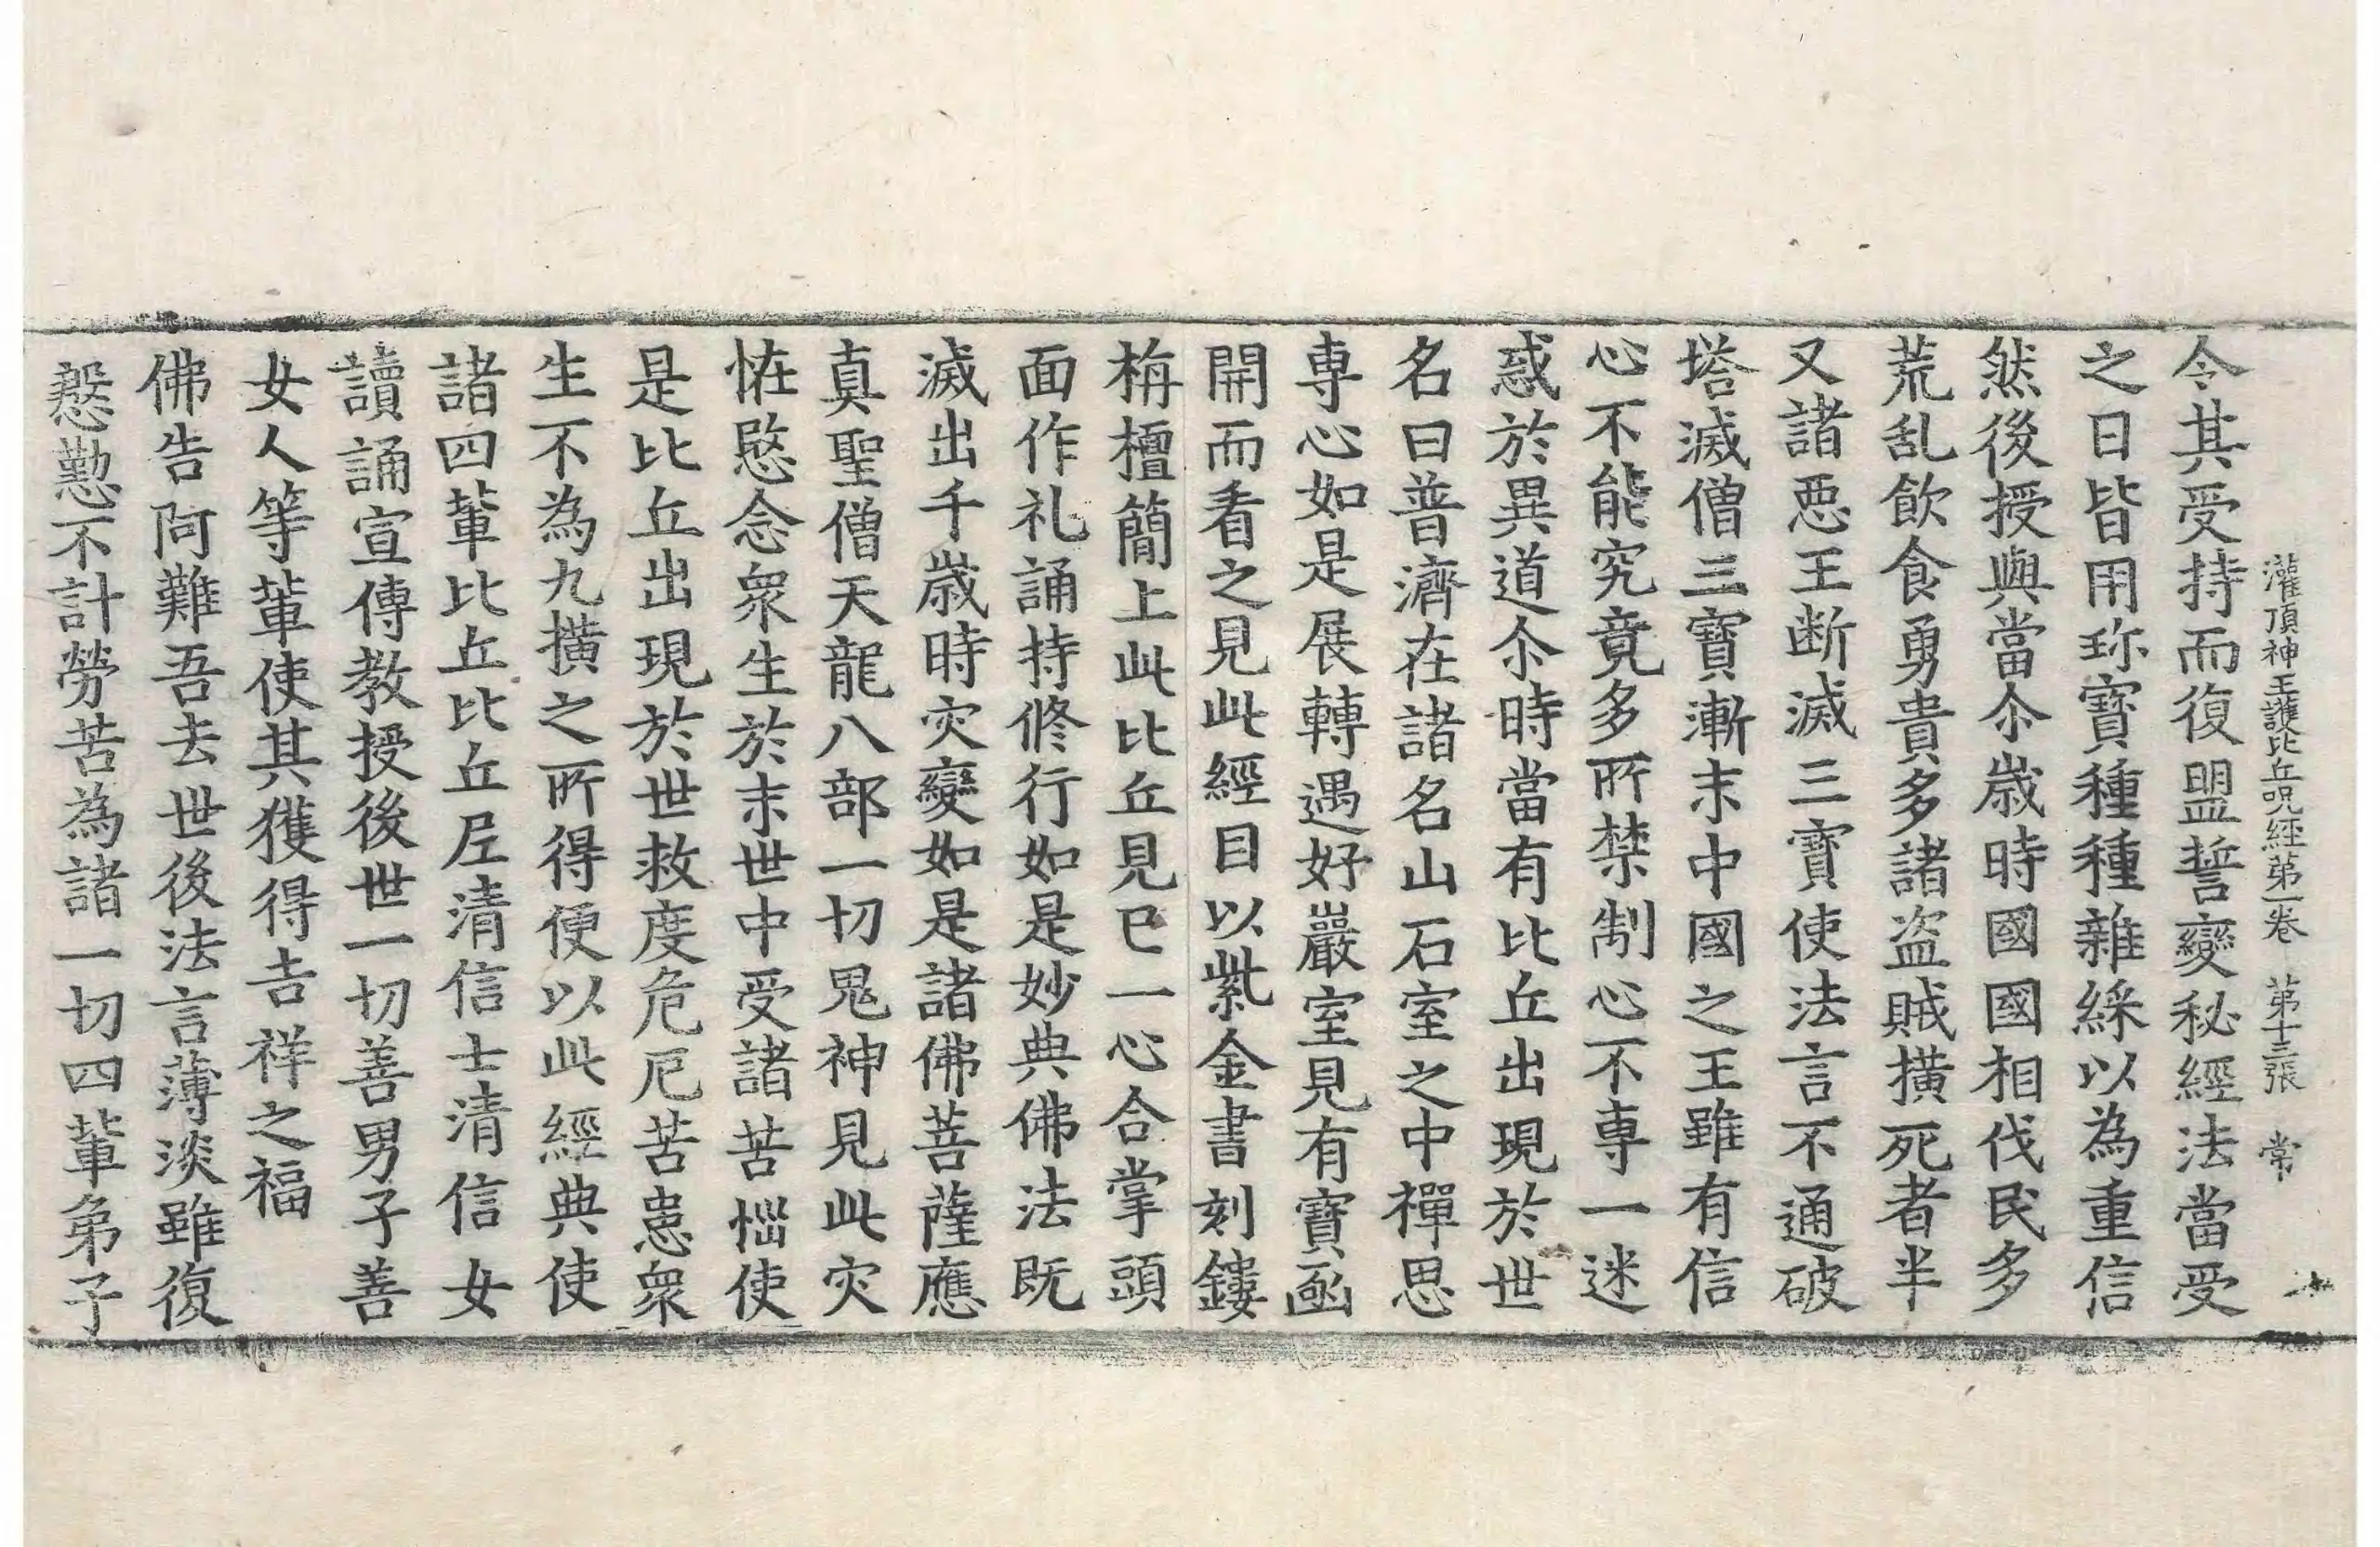 灌頂神王護比丘呪經第一卷　第十三張　常
令其受持而復盟誓變秘經法當受
之日皆用珎寶種種雜綵以為重信
然後授與當尒歲時國國相伐民多
荒乱飲食勇貴多諸盗賊横死者半
又諸惡王断滅三寶使法言不通破
塔滅僧三寶漸末中國之王雖有信
心不能究竟多所禁制心不專一迷
惑於異道尒時當有比丘出現於世
名曰普濟在諸名山石室之中禪思
專心如是展轉遇好巖室見有寶函
開而看之見此經目以紫金書刻鏤
栴檀簡上此比丘見已一心合掌頭
面作礼誦持修行如是妙典佛法既
滅出千歲時灾變如是諸佛菩薩應
真聖僧天龍八部一切鬼神見此灾
恠愍念衆生於末世中受諸苦惱使
是比丘出現於世救度危厄苦患衆
生不為九横之所得便以此經典使
諸四軰比丘比丘尼清信士清信女
讀誦宣傳教授後世一切善男子善
女人等軰使其獲得吉祥之福
佛告阿難吾去世後法言薄淡雖復
慇懃不計勞苦為諸一切四軰弟子